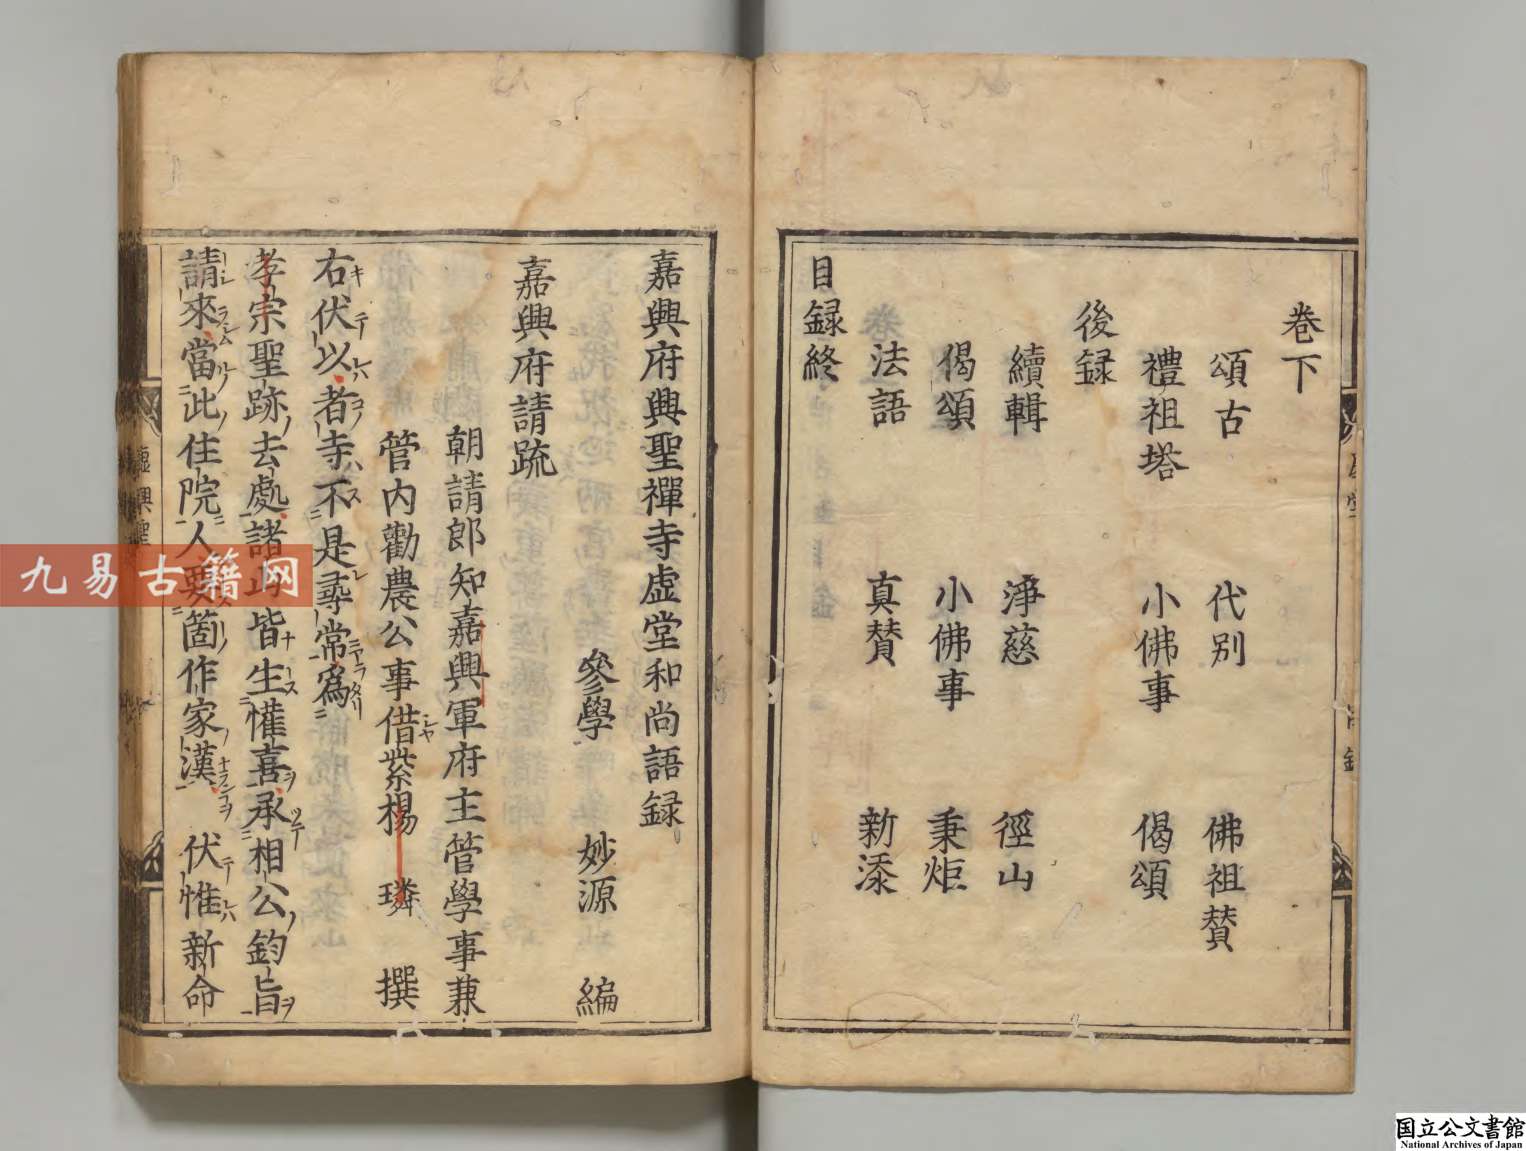 卷下
頌古 代別 佛祖賛
禮祖塔 小佛事 偈頌
後録
續輯 淨慈 徑山
偈頌 小佛事 秉炬
法語 真賛 新添
目録終
嘉興府興聖禪寺虚堂和尚語録
參學 妙源 編
嘉興府請疏
朝請郎知嘉興軍府主管學事兼
管内勸農公事借紫楊 璘 撰
右伏以者寺不是尋常爲
孝宗聖跡去處諸山皆生懽喜承相公鈞旨
請來當此住院人要箇作家漢 伏惟新命
九易古籍网
国立公文書館
National Archives of Japan